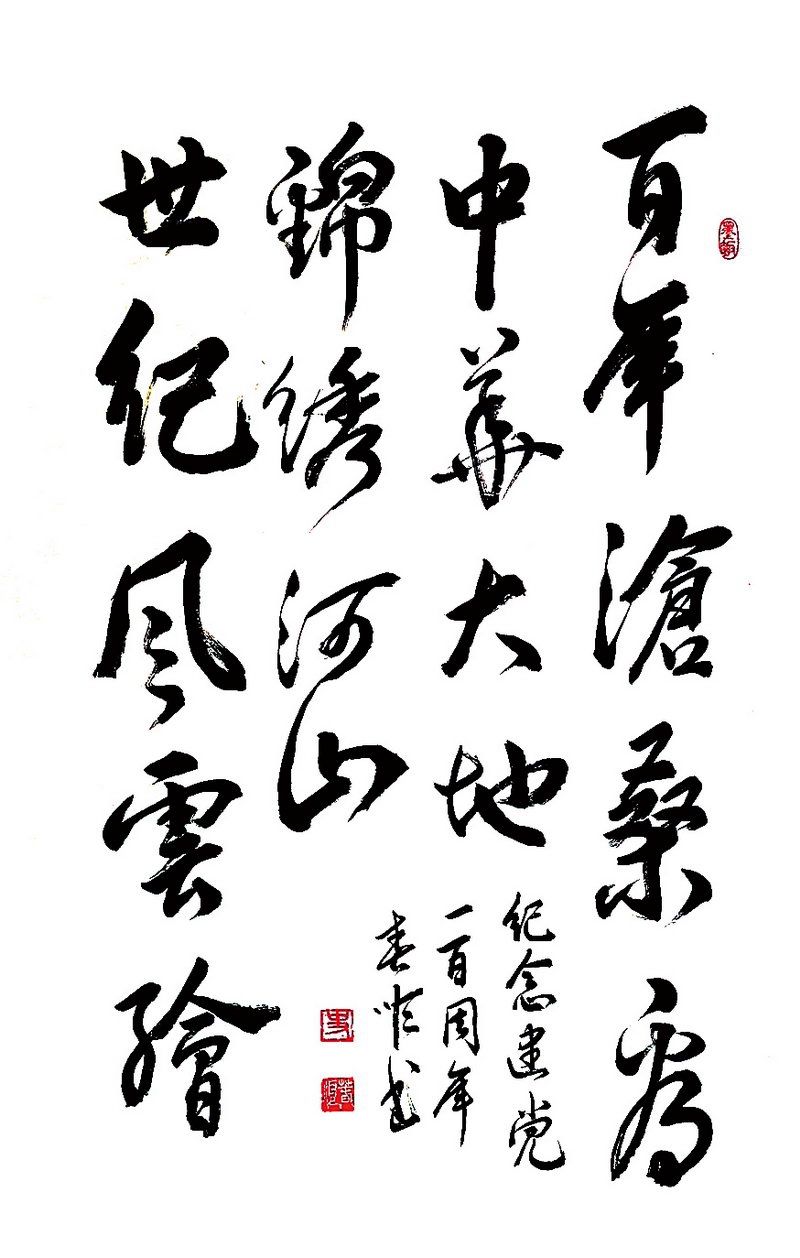 百年滄桑
中華大地
世紀風雲繪
錦绣河山
纪念建党
一百周年
春 书